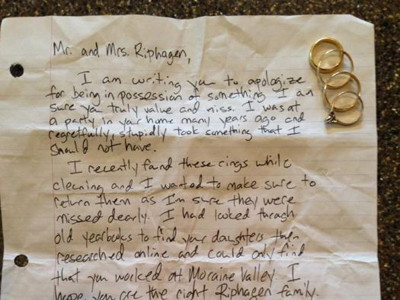 Mr. and Mrs. Riphagen,
I am writing you to apologize
for being in possession of something I am
sure you truly value and miss. I was at
a party in your home many years ago and
regretfully, stupidly took something that I
should not have.
I recently found these rings while
cleaning and I wanted to make sure to
return them as I'm sure they were
missed dearly. I had looked through
old yearbooks to find your daughters then
researched online and could only find
that you worked at Moraine Valley. I
hope you are the right Riphagen family.